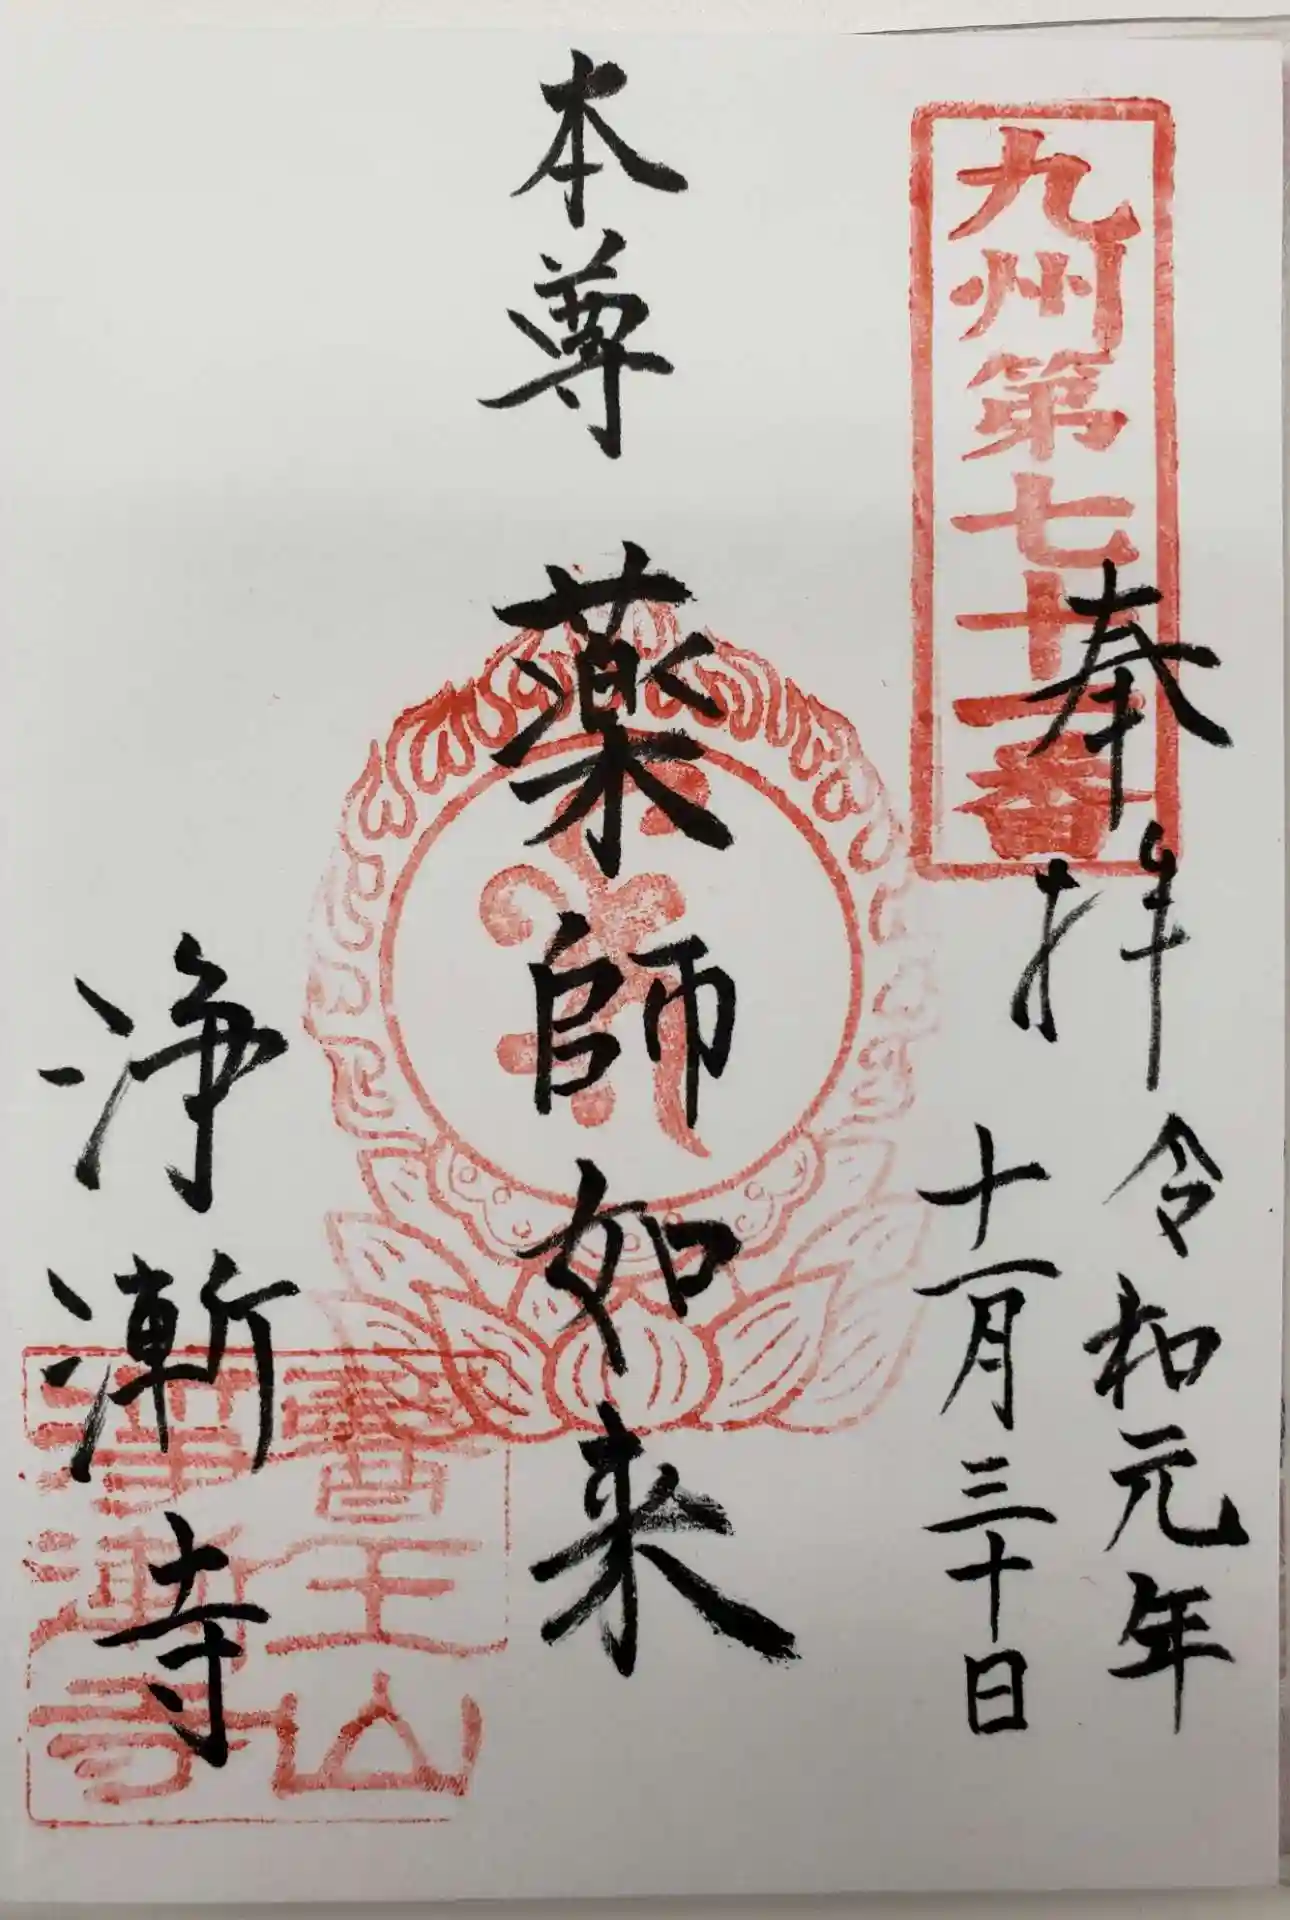 九州第七十一番
奉拝
令和元年
十一月三十日
本尊
薬師如来
医王山
浄漸寺
浄漸寺